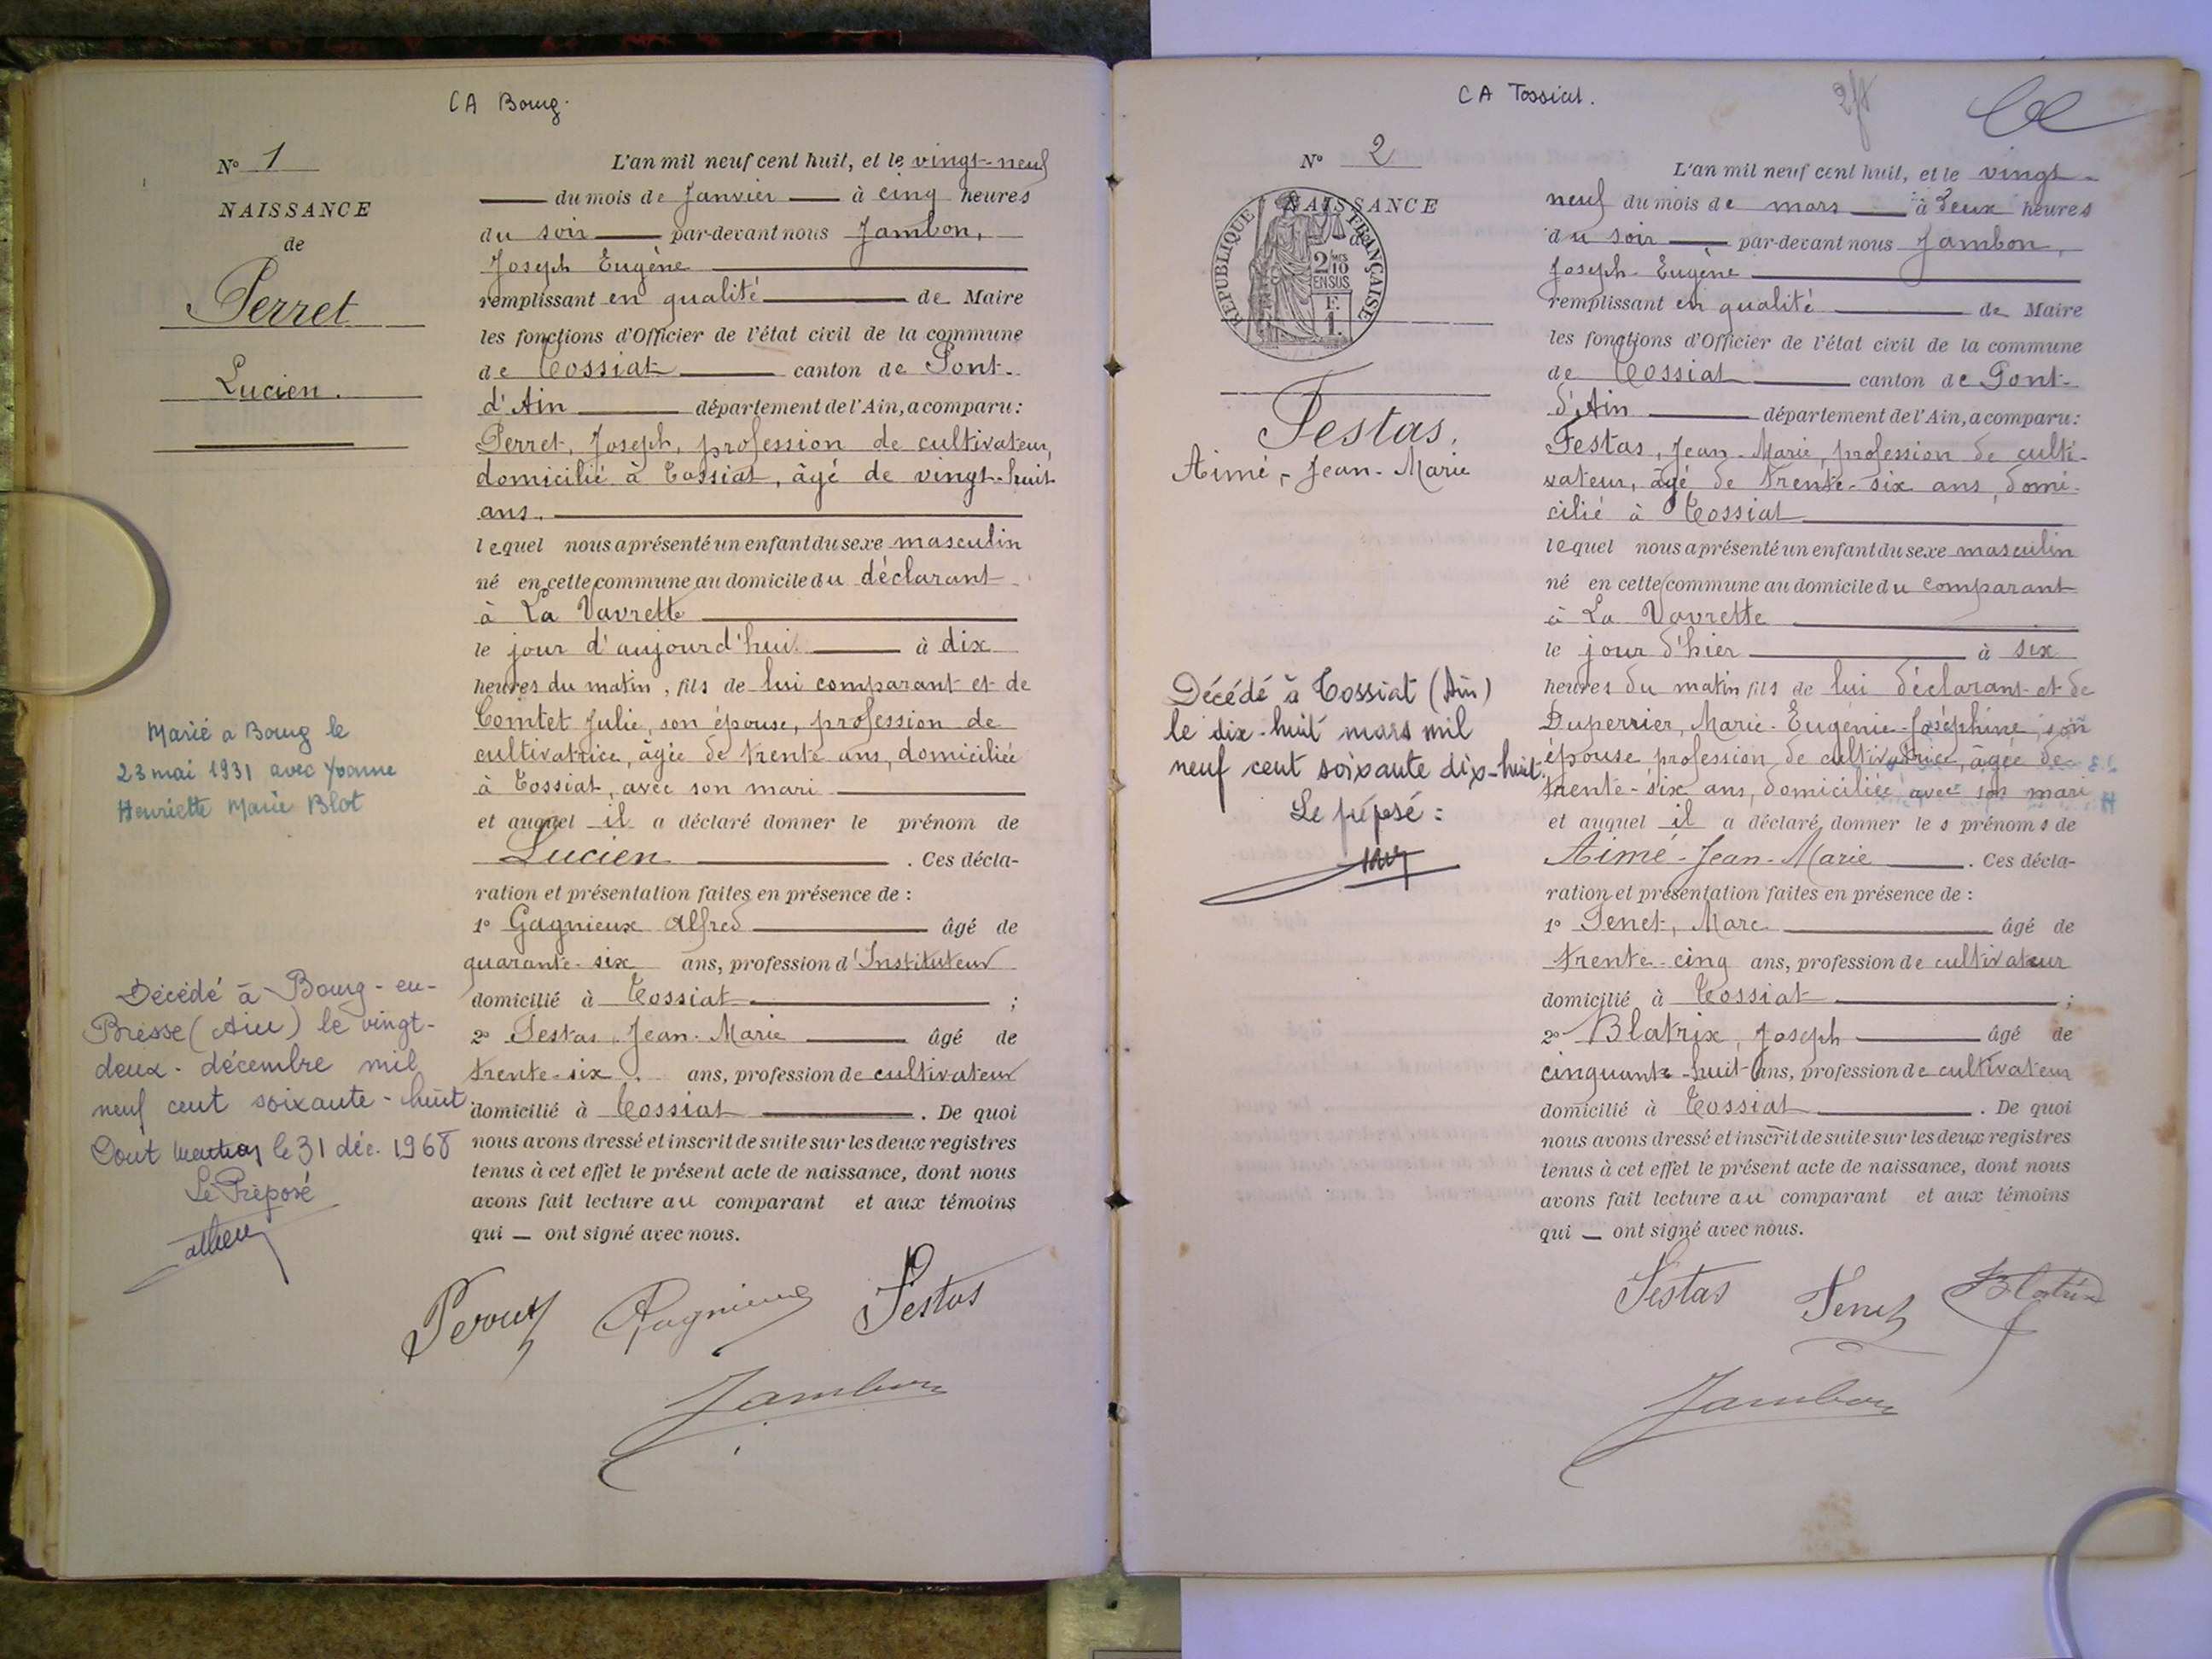 CA Bourg.
N° 1
NAISSANCE
de
Perret
Lucien.
Marié a Bourg le
23 mai 1931 avec Yvonne
Henriette Marie Blot
Décédé à Bourg-en-
Bresse (Ain) le vingt-
deux-décembre mil
neuf cent soixante-huit
Dont mention le 31 déc. 1968
Le Préposé
L'an mil neuf cent huit, et le vingt-neuf
du mois de Janvier à cinq heures
du soir par-devant nous Jambon,
Joseph Eugène
remplissant en qualité de Maire
les fonctions d'Officier de l'état civil de la commune
de Tossiat canton de Pont-
d'Ain département de l'Ain, a comparu:
Perret, Joseph, profession de cultivateur,
domicilié à Tossiat, âgé de vingt-huit
ans.
lequel nous a présenté un enfant du sexe masculin
né en cette commune au domicile du déclarant
à La Vavrette
le jour d'aujourd'hui à dix
heures du matin, fils de lui comparant et de
Comtet Julie, son épouse, profession de
cultivatrice, âgée de trente ans, domiciliée
à Tossiat, avec son mari
et auquel il a déclaré donner le prénom de
Lucien. Ces décla-
ration et présentation faites en présence de :
1° Gagnieux Alfred âgé de
quarante-six ans, profession d'Instituteur
domicilié à Tossiat ;
2° Testas, Jean-Marie âgé de
trente-six. ans, profession de cultivateur
domicilié à Tossiat. De quoi
nous avons dressé et inscrit de suite sur les deux registres
tenus à cet effet le présent acte de naissance, dont nous
avons fait lecture au comparant et aux témoins
qui — ont signé avec nous.
Gagnieux Testas
Jambon
CA Tossiat.
N° 2
NAISSANCE
de
RÉPUBLIQUE FRANÇAISE
2/10 MES
EN SUS
F.
1.
Testas.
Aimé-Jean-Marie
Décédé à Tossiat (Ain)
le dix-huit mars mil
neuf cent soixante dix-huit.
Le préposé :
L'an mil neuf cent huit, et le vingt-
neuf du mois de mars à deux heures
du soir par-devant nous Jambon,
Joseph-Eugène
remplissant en qualité de Maire
les fonctions d'Officier de l'état civil de la commune
de Tossiat canton de Pont-
d'Ain département de l'Ain, a comparu:
Testas, Jean-Marie, profession de culti-
vateur, âgé de trente-six ans, domi-
cilié à Tossiat
lequel nous a présenté un enfant du sexe masculin
né en cette commune au domicile du comparant
à La Vavrette
le jour d'hier à six
heures du matin fils de lui déclarant et de
Duperrier, Marie-Eugénie-Joséphine, son
épouse profession de cultivatrice, âgée de
trente-six ans, domiciliée avec son mari
et auquel il a déclaré donner les prénoms de
Aimé-Jean-Marie. Ces décla-
ration et présentation faites en présence de :
1° Tenet, Marc âgé de
trente-cinq ans, profession de cultivateur
domicilié à Tossiat ;
2° Blatrix, Joseph âgé de
cinquante-huit ans, profession de cultivateur
domicilié à Tossiat. De quoi
nous avons dressé et inscrit de suite sur les deux registres
tenus à cet effet le présent acte de naissance, dont nous
avons fait lecture au comparant et aux témoins
qui — ont signé avec nous.
Testas Tenet Blatrix
Jambon